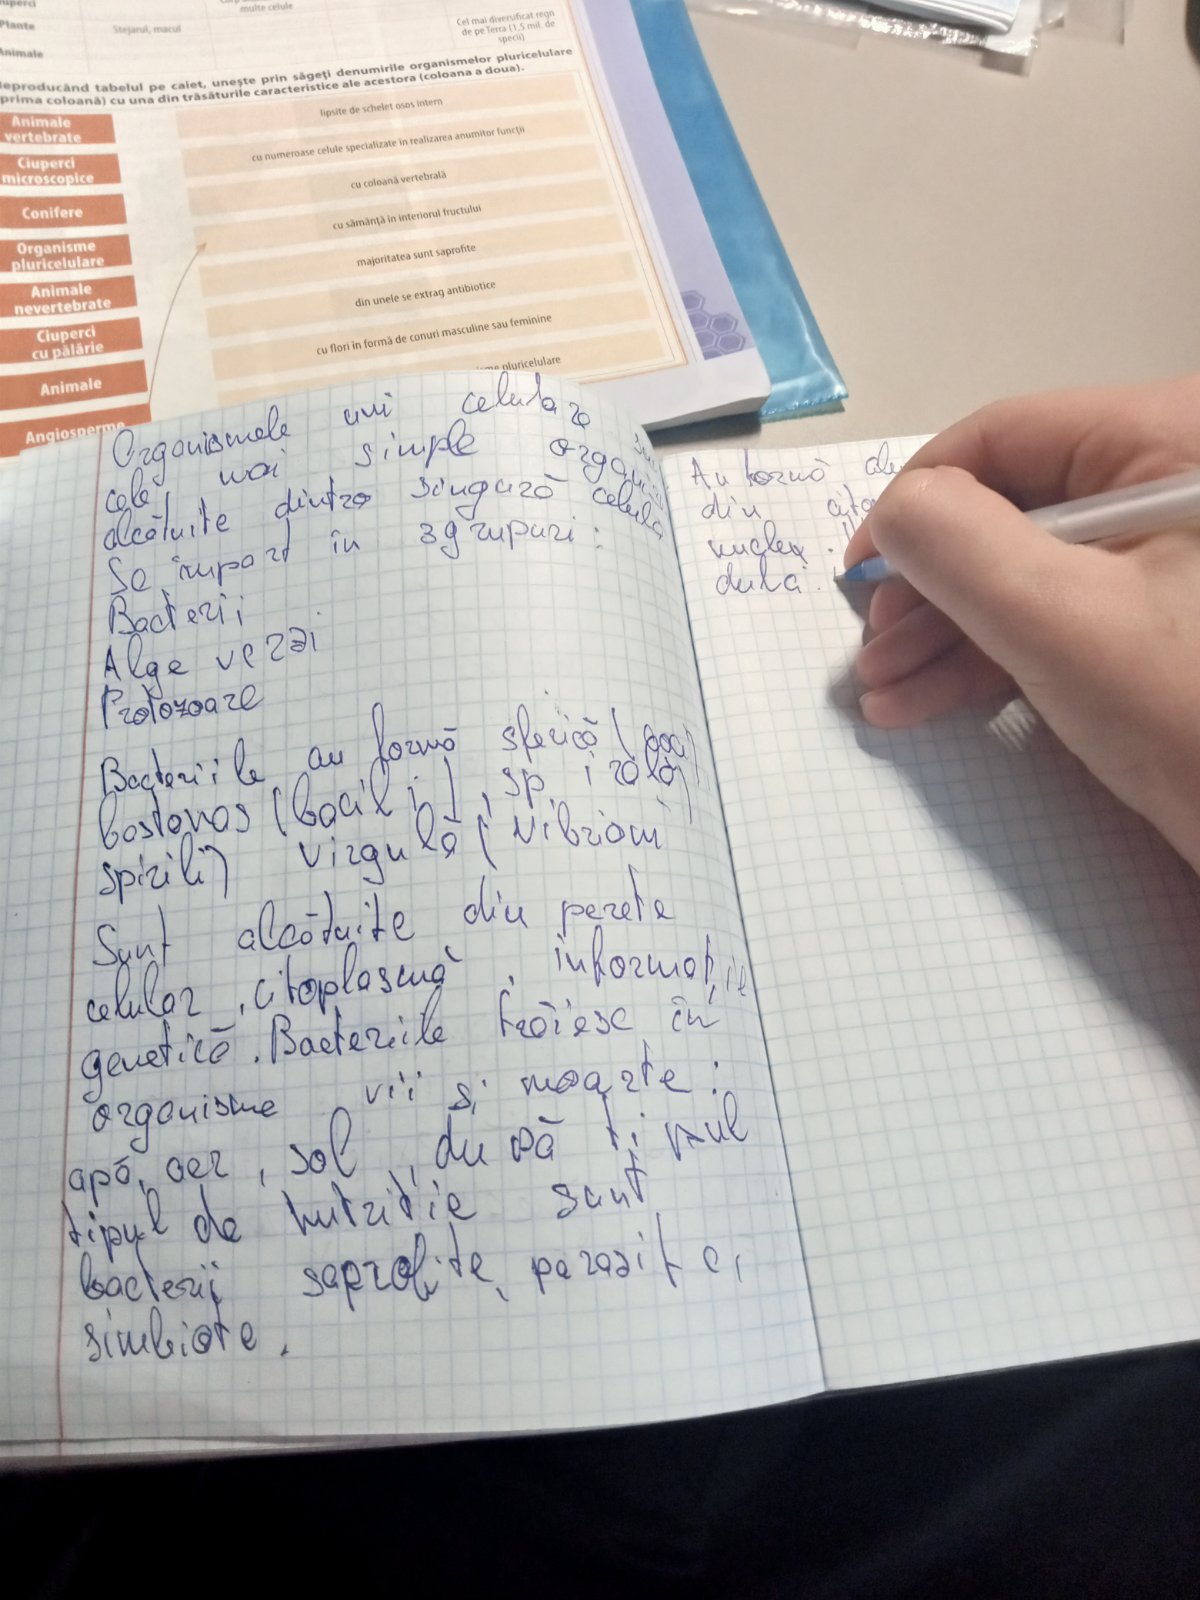 multe celule
Plante
Stejarul, macul
Cel mai diversificat regn
de pe Terra (1,5 mil. de
specii)
Animale
Reproducând tabelul pe caiet, unește prin săgeți denumirile organismelor pluricelulare
(prima coloană) cu una din trăsăturile caracteristice ale acestora (coloana a doua).
Animale
vertebrate
Ciuperci
microscopice
Conifere
Organisme
pluricelulare
Animale
nevertebrate
Ciuperci
cu pălărie
Animale
Angiosperme
lipsite de schelet osos intern
cu numeroase celule specializate în realizarea anumitor funcții
cu coloană vertebrală
cu sămânță în interiorul fructului
majoritatea sunt saprofite
din unele se extrag antibiotice
cu flori în formă de conuri masculine sau feminine
pluricelulare
Organismele uni celulare
cele mai simple
alcătuite dintro singură celula
Se împart în 3 grupuri:
Bacterii
Alge verzi
Protozoare
Bacteriile au formă sferică (
bastonas (bacili), spirală
spirili) virgulă (vibrioni
Sunt alcătuite din perete
celular, citoplasmă, informație
genetică. Bacteriile trăiesc în
organisme vii și moarte:
apă, aer, sol, după
tipul de nutritie sunt
bacterii saprofite, parazite,
simbiote.
Au formă
din